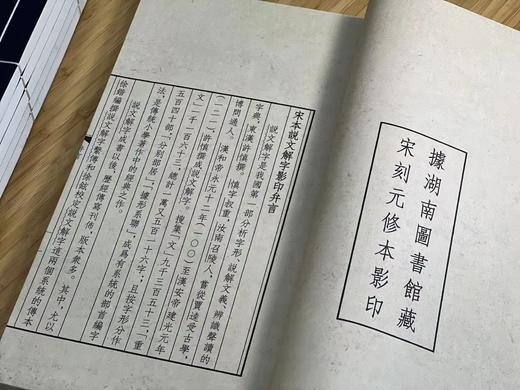 據湖南圖書館藏
宋刻元修本影印
宋本說文解字影印弁言
說文解字是我國第一部分析字形、說解文義、辨識聲讀的
字典,東漢許慎撰。慎字叔重,汝南召陵人,嘗從賈逵受古學,
博問通人。漢和帝永元十二年(一〇〇)至漢安帝建光元年
(一二一),許慎撰成說文解字。搜集「文」九千三百五十三,「重
文」一千一百六十三,總計一萬又五百一十六字;且按字形分作
五百四十部,分別部居,「據形系聯」,成爲有系統的部首編字
法,是傳統小學著作中的經典之作。
說文解字成書以後,歷經傳寫刊佈,版本衆多。其中,尤以
徐鍇編撰說文解字繫傳和徐鉉校定說文解字這兩個系統的傳本